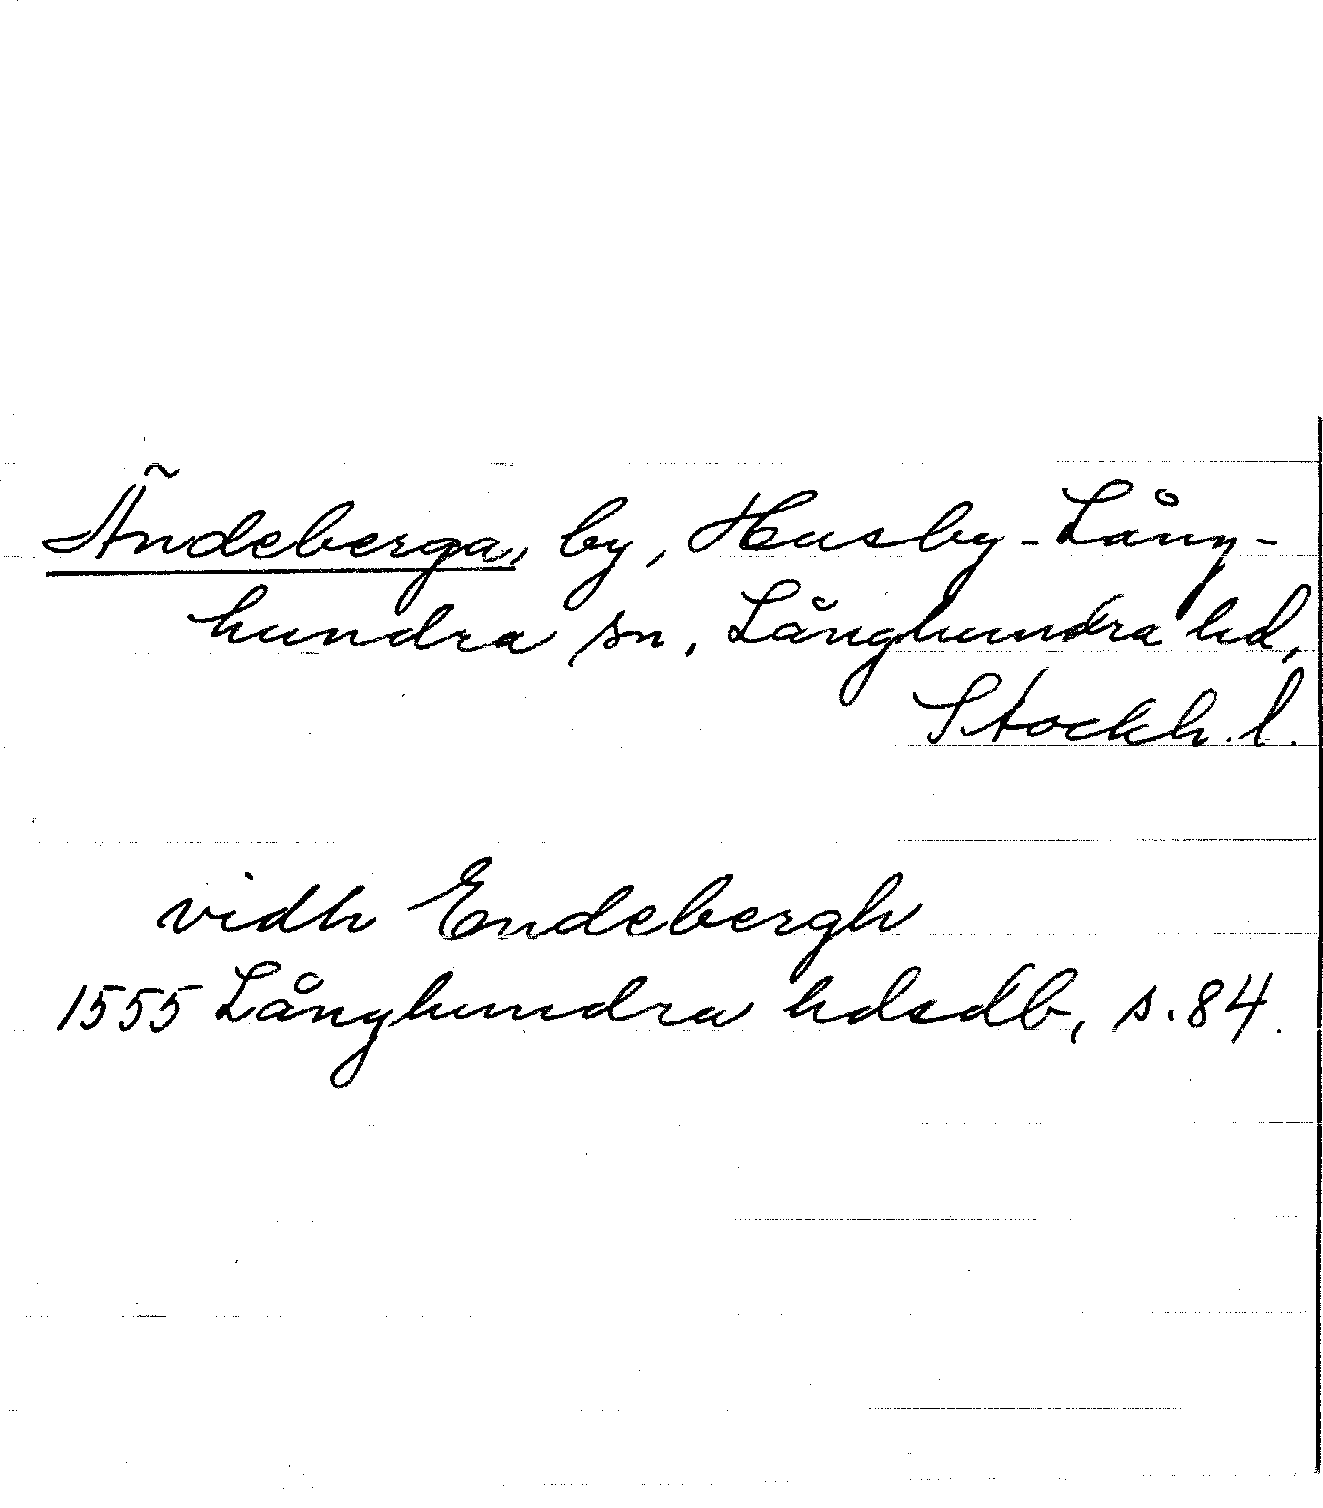 Ändeberga, by, Husby-Lång-
hundra sn, Långhundra hd,
Stockh. l.
vidh Endebergh
1555 Långhundra hdsdb, s. 84.